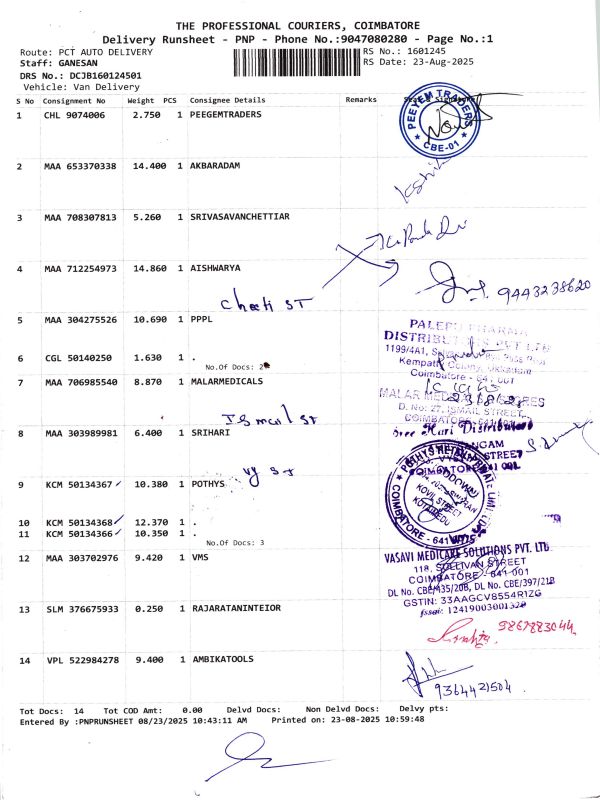 THE PROFESSIONAL COURIERS, COIMBATORE
Delivery Runsheet - PNP - Phone No.:9047080280 - Page No.:1
Route: PCT AUTO DELIVERY
RS No.: 1601245
Staff: GANESAN
RS Date: 23-Aug-2025
DRS No.: DCJB160124501
Vehicle: Van Delivery
S No Consignment No Weight PCS Consignee Details Remarks
1 CHL 9074006 2.750 1 PEEGEMTRADERS
PEEYEM TRADERS
CBE-01
2 MAA 653370338 14.400 1 AKBARADAM
3 MAA 708307813 5.260 1 SRIVASAVANCHETTIAR
4 MAA 712254973 14.860 1 AISHWARYA
9443238620
Cheeti ST
5 MAA 304275526 10.690 1 PPPL
PALEPU PHARMA
DISTRIBUTORS PVT LTD
1199/4A1,
6 CGL 50140250 1.630 1 .
No.Of Docs: 2
Coimbatore - 641 001
7 MAA 706985540 8.870 1 MALARMEDICALS
MALAR MEDICAL STORES
D. No: 27, ISMAIL STREET,
Ismail ST
8 MAA 303989981 6.400 1 SRIHARI
Sree Hari Distributors
STREET
COIMBATORE-641 001.
vy ST
9 KCM 50134367 10.380 1 POTHYS
COIMBATORE - 641
10 KCM 50134368 12.370 1 .
11 KCM 50134366 10.350 1 .
No.Of Docs: 3
12 MAA 303702976 9.420 1 VMS
VASAVI MEDICARE SOLUTIONS PVT. LTD.
118, SULLIVAN STREET
COIMBATORE - 641 001
DL No. CBE/435/20B, DL No. CBE/397/21B
GSTIN: 33AAGCV8554R1ZG
fssai: 12419003001320
13 SLM 376675933 0.250 1 RAJARATANINTEIOR
9867883044
14 VPL 522984278 9.400 1 AMBIKATOOLS
9364421504
Tot Docs: 14 Tot COD Amt: 0.00 Delvd Docs: Non Delvd Docs: Delvy pts:
Entered By :PNPRUNSHEET 08/23/2025 10:43:11 AM Printed on: 23-08-2025 10:59:48